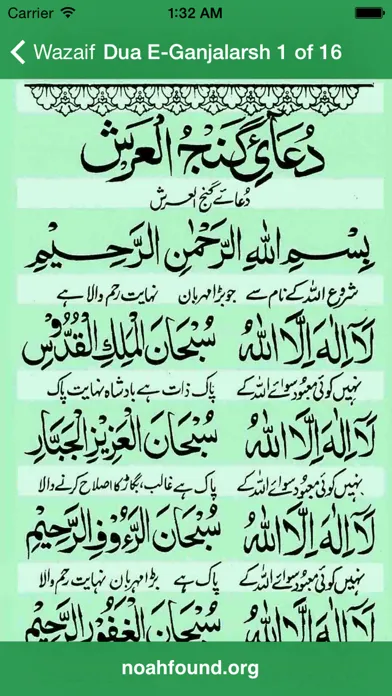 Carrier 1:32 AM
Wazaif Dua E-Ganjalarsh 1 of 16
دُعَائِ گَنْجُ الْعَرْش
دُعائے گنج العرش
بِسْمِ اللهِ الرَّحْمٰنِ الرَّحِيْمِ
شروع اللہ کے نام سے جو بڑا مہربان نہایت رحم والا ہے
لَآ اِلٰهَ اِلَّا اللهُ سُبْحَانَ الْمَلِكِ الْقُدُّوْسِ
نہیں کوئی معبود سوائے اللہ کے پاک ذات ہے بادشاہ نہایت پاک
لَآ اِلٰهَ اِلَّا اللهُ سُبْحَانَ الْعَزِيْزِ الْجَبَّارِ
نہیں کوئی معبود سوائے اللہ کے پاک ہے غالب، بگاڑ کا اصلاح کرنے والا
لَآ اِلٰهَ اِلَّا اللهُ سُبْحَانَ الرَّءُوْفِ الرَّحِيْمِ
نہیں کوئی معبود سوائے اللہ کے پاک ہے بڑا مہربان نہایت رحم والا
لَآ اِلٰهَ اِلَّا اللهُ سُبْحَانَ الْغَفُوْرِ الرَّحِيْمِ
noahfound.org